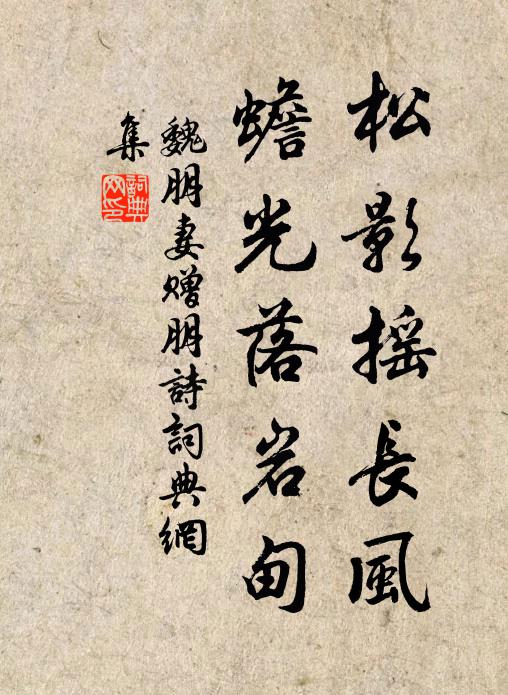 松影摇長風
蟾光落岩甸
魏朋妻赠朋詩詞典網
集
詞典网印